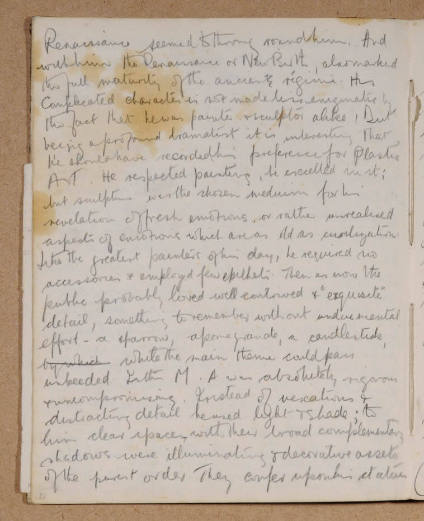 Renaissance seemed to throng round him. And
with him the Renaissance or New Birth, also marked
the full maturity of the ancient régime. His
complicated character is not made less enigmatic by
the fact that he was painter & sculptor alike; but
being a profound dramatist it is interesting that
he should have recorded his preference for Plastic
Art. He respected painting, he excelled in it;
but sculpture was the chosen medium for his
revelation of fresh emotions, or rather unrealised
aspects of emotions which are as old as civilization.
Like the greatest painters of his day, he required no
accessories & employed few epithets. Then as now the
public probably loved well contoured & "exquisite"
detail, something to remember without undue mental
effort - a sparrow, a pomegranate, a candlestick,
by which while the main theme could pass
unheeded. In this M. A was absolutely rigorous
& uncompromising. Instead of vexatious &
distracting detail he used light & shade; to
him clear spaces, with their broad complementary
shadows were illuminating & decorative assets
of the purest order. They confer upon his statues